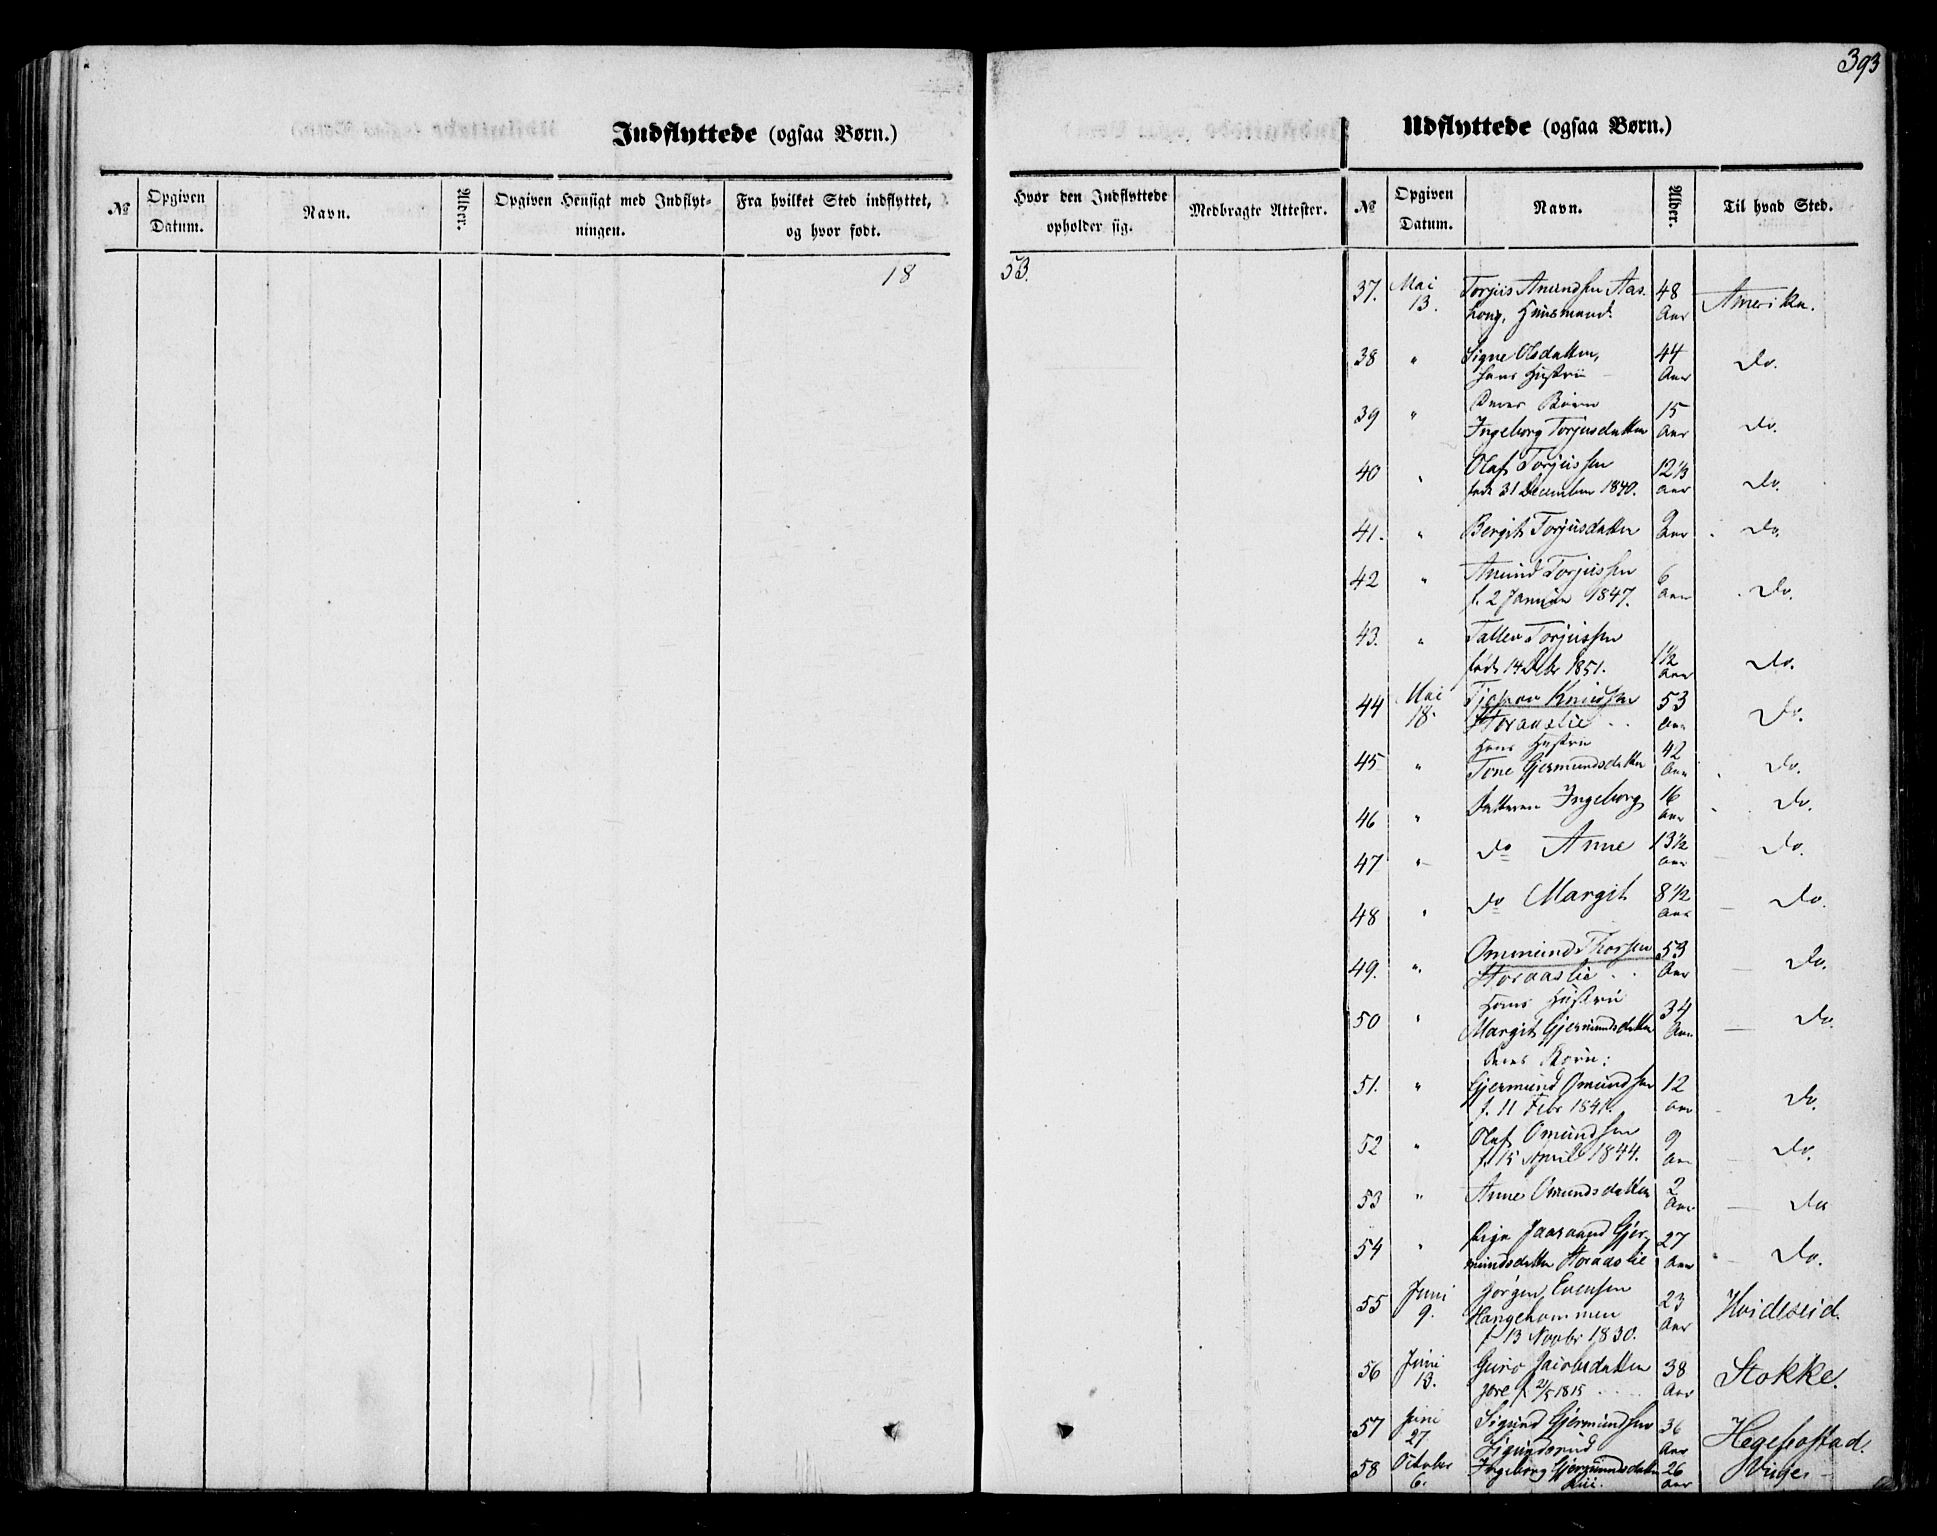 393
Indflyttede (ogsaa Børn.)
№
Opgiven Datum.
Navn.
Alder.
Opgiven Hensigt med Indflyt-
ningen.
Fra hvilket Sted indflyttet,
og hvor født.
18
Udflyttede (ogsaa Børn.)
Hvor den Indflyttede
opholder sig.
Medbragte Attester.
№
Opgiven Datum.
Navn.
Alder.
Til hvad Sted.
53.
37. Mai 13. Torjus Amundsen Aas- 48 Aar Amerika.
Huusmand.
38 " Signe Olsdatter, 44 Aar do.
hans Hustru
39 " Deres Børn 15 Aar do.
Ingeborg Torjusdatter
40 " Olaf Torjussen 12 1/3 Aar do.
født 31 December 1840.
41. " Bergit Torjusdatter 9 Aar do.
42 " Amund Torjussen 6 Aar do.
f. 2 Januar 1847.
43. " Tallev Torjussen 1 1/2 Aar do.
født 14 Debr 1851.
44 Mai 18. Knudsen 53 Aar do.
Storaaslie
45 " Hans Hustru 42 Aar do.
Tone Gjermundsdatter
46 " Datteren Ingeborg 16 Aar do.
47 " do Anne 13 1/2 Aar do.
48 " do Margit 8 1/2 Aar do.
49. " Ommund Thorsen 53 Aar do.
Storaaslie
50 " Hans Hustru 34 Aar do.
Margit Gjermundsdatter
Deres Børn:
51. " Gjermund Omundsen 12 Aar do.
f. 11 Febr 1841.
52 " Olaf Omundsen 9 Aar do.
f. 15 April 1844.
53 " Anne Omundsdatter 2 Aar do
54 " Pige Gjer- 27 Aar do.
mundsdatter Storaaslie
55 Juni 9. Jørgen Evensen 23 Aar Hvideseid.
Haugehommen
f 13 Novbr 1830.
56 Juni 13. Guro Jacobsdatter 38 Aar Stokke.
f 21/5 1815
57 Juni 27 Sigurd Gjermundsen 36 Aar Hegefostad.
58 October 6. Ingeborg Gjermundsdatter 26 Aar Vinje